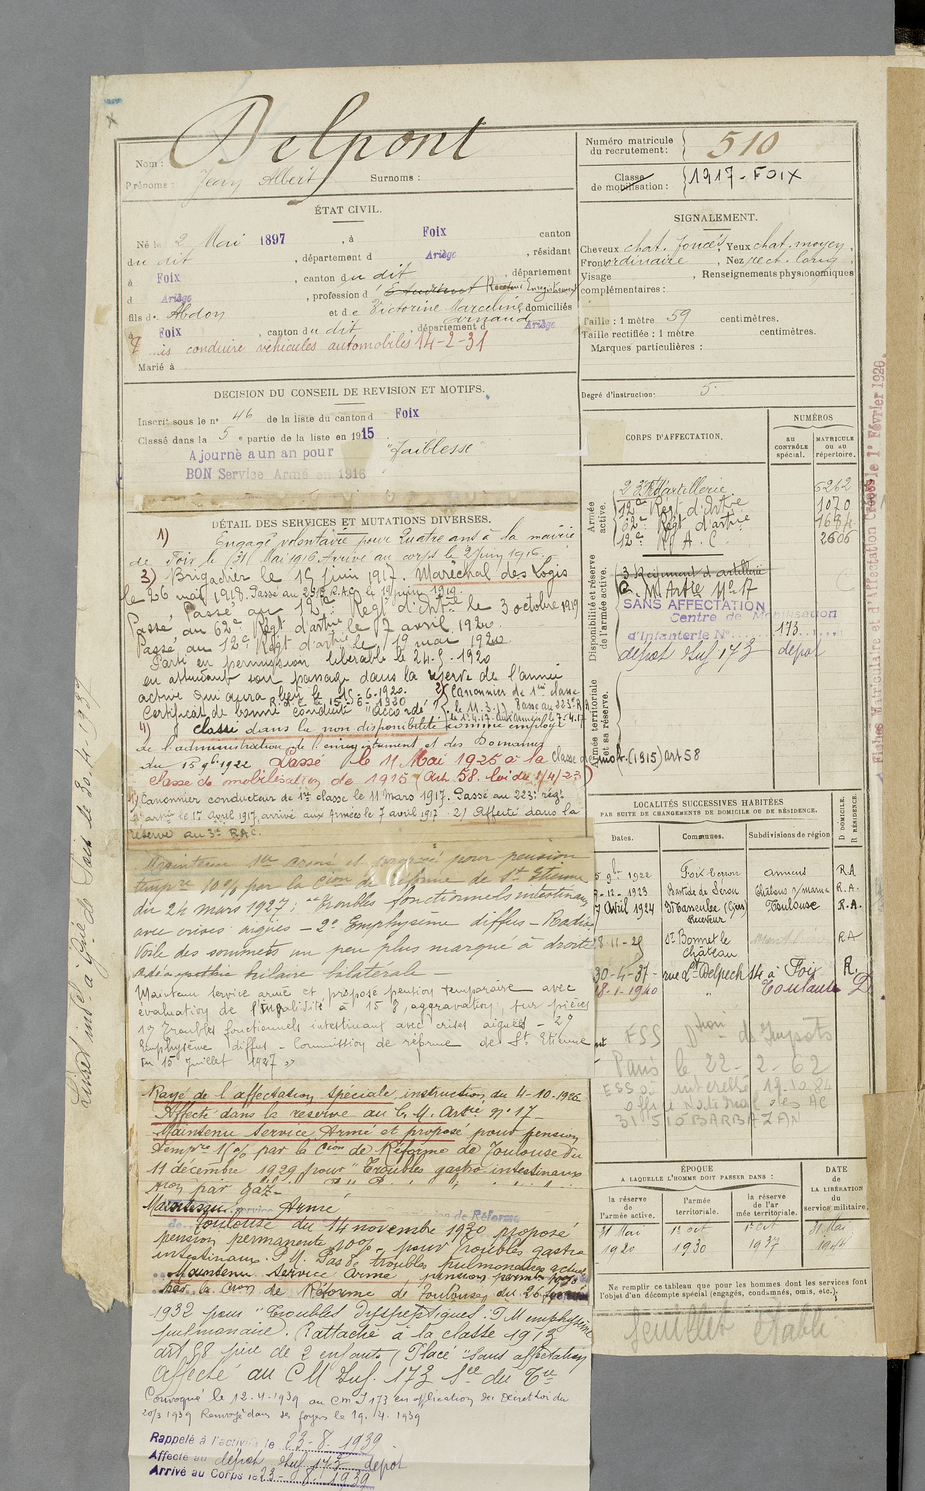 Delpont
Nom :
Prénoms : Jean Albert Surnoms :
Numéro matricule
du recrutement : 510
Classe
de mobilisation : 1917 - FOIX
ÉTAT CIVIL.
Né le 2 Mai 1897, à Foix canton
du dit, département d Ariège, résidant
à Foix, canton du dit, département
d Ariège, profession d Etudiant Receveur Enregistrement
fils de Abdon et de Victorine Marceline Arnaud domiciliés
à Foix canton du dit, département d Ariège
conduire véhicules automobiles 14-2-31
Marié à
SIGNALEMENT.
Cheveux chat. foncés, Yeux chat. moyen,
Front ordinaire, Nez rect. long,
Visage , Renseignements physionomiques
complémentaires :
Taille : 1 mètre 59 centimètres.
Taille rectifiée : 1 mètre centimètres.
Marques particulières :
Degré d'instruction : 5
DECISION DU CONSEIL DE REVISION ET MOTIFS.
Inscrit sous le n° 46 de la liste du canton d Foix
Classé dans la 5e partie de la liste en 1915
Ajourné a un an pour "faiblesse"
BON Service Armé en 1916
CORPS D'AFFECTATION.
NUMÉROS
AU CONTRÔLE SPÉCIAL.
MATRICULE OU AU RÉPERTOIRE.
Armée active.
23e d'artillerie 6262
12e Régt d'Artrie 1070
62e Régt d'artrie
12e R A C 2606
Disponibilité et réserve de l'armée active.
3 Régiment d'artillerie
C. M Artie N° 17
SANS AFFECTATION
Centre de Mobilisation
d'Infanterie N° 173
dépot Inf 173 depot
Armée territoriale et sa réserve.
Fiches Matriculaire et d'Affectation Créées le 1er Février 1926.
DÉTAIL DES SERVICES ET MUTATIONS DIVERSES.
1) Engagé volontaire pour quatre ans à la mairie
de Foix le 31 Mai 1916. Arrivé au corps le 2 juin 1916.
3) Brigadier le 15 juin 1917. Maréchal des Logis
le 26 mai 1919.
Passé au 12e Régt d'Artie le 3 octobre 1919
Passé au 62e Régt d'artie le 7 avril 1920.
Passé au 12e Régt d'artie le 19 mai 1920
Parti en permission libérable le 24-5-1920
en attendant son passage dans la réserve de l'armée
active qui aura lieu le 15-6-1920.
Certificat de bonne conduite "Accordé"
2) Canonnier de 1ère classe
le 11.3.17. Passé au 223e R A
4) classé dans la non disponibilité comme employé
de l'administration de l'enregistrement et des Domaines
du 15 9bre 1922 Passé le 11 Mai 1925 à la classe de mob. (1915) art 58
classe de mobilisation de 1915 Art. 58. loi du 1/4/23
Canonnier conducteur de 1re classe le 11 Mars 1917. Passé au 223e régt
d'artie le 17 Avril 1917, arrivé aux Armées le 7 avril 1917. 2) Affecté dans la
réserve au 3e RAC.
Maintenu ser armé et proposé pour pension
tempre 10% par la Cion de Réforme de St Etienne
du 24 mars 1927 : "troubles fonctionnels intestinaux
avec crises aigues – 2° Emphysème diffus – Radio
Voile des sommets un peu plus marqué à droite
hilaire bilatérale
Maintenu service armé et proposé pention temporaire avec
évaluation de l'invalidité à 15 %, aggravation, sur pièces
1° Troubles fonctionnels intestinaux avec crises aiguës – 2°
Emphysème diffus – Commission de réforme de St Etienne
du 15 Juillet 1927 »
Rayé de l'affectation spéciale, instruction du 4-10-1926
Affecté dans la réserve au C. M. Artie n° 17
Maintenu Service Armé et proposé pour pension
tempre 10% par la Cion de Réforme de Toulouse du
11 décembre 1929 pour "Troubles gastro intestinaux
par gaz
Maintenu service Armé
Toulouse du 14 novembre 1930 proposé
pension permanente 10% pour troubles gastro
intestinaux. P.M. Pas de troubles pulmonaires actuels
Maintenu Service Armé pension permte 10%
par la Cion de Réforme de Toulouse du 26
1932 pour "Troubles dyspeptiques. P M emphysème
pulmonaire. Rattaché à la classe 1913
art 58 père de 2 enfants / Placé "Sans affectation
Affecté au C M Inf. 173
Convoqué le 12-4-1939 au CM I 173 en application du Décret Loi du
20/3 1939 Renvoyé dans ses foyers le 19. 4. 1939
Rappelé à l'activité le 23-8-1939
Affecté au dépôt Inf 173 depot
Arrivé au Corps le 23-8-1939
LOCALITÉS SUCCESSIVES HABITÉES
PAR SUITE DE CHANGEMENTS DE DOMICILE OU DE RÉSIDENCE.
Dates. Communes. Subdivisions de région D DOMICILE. R RÉSIDENCE.
5 9bre 1922 Amiens R A
-12-1923 Bastide de Sérou Châlons s/marne R.A.
7 Avril 1924 Masseube (Gers) Receveur Toulouse R.A.
8-11-25 St Bonnet le Château R A
30-4-37 rue Lt Delpech 14 à Foix R
8-1-1940 " Toulouse D
ESS Dtion d'Impots
Paris le 22-2-62
ESS 19.10.84
office National des AC
31510 BARBAZAN
ÉPOQUE
A LAQUELLE L'HOMME DOIT PASSER DANS :
la réserve de l'armée active.
l'armée territoriale.
la réserve de l'armée territoriale.
DATE DE LA LIBÉRATION du service militaire.
31 Mai 1920
1er oct 1930
1er oct 1937
31 Mai
Ne remplir ce tableau que pour les hommes dont les services font
l'objet d'un décompte spécial (engagés, condamnés, omis, etc.).
feuillet établi